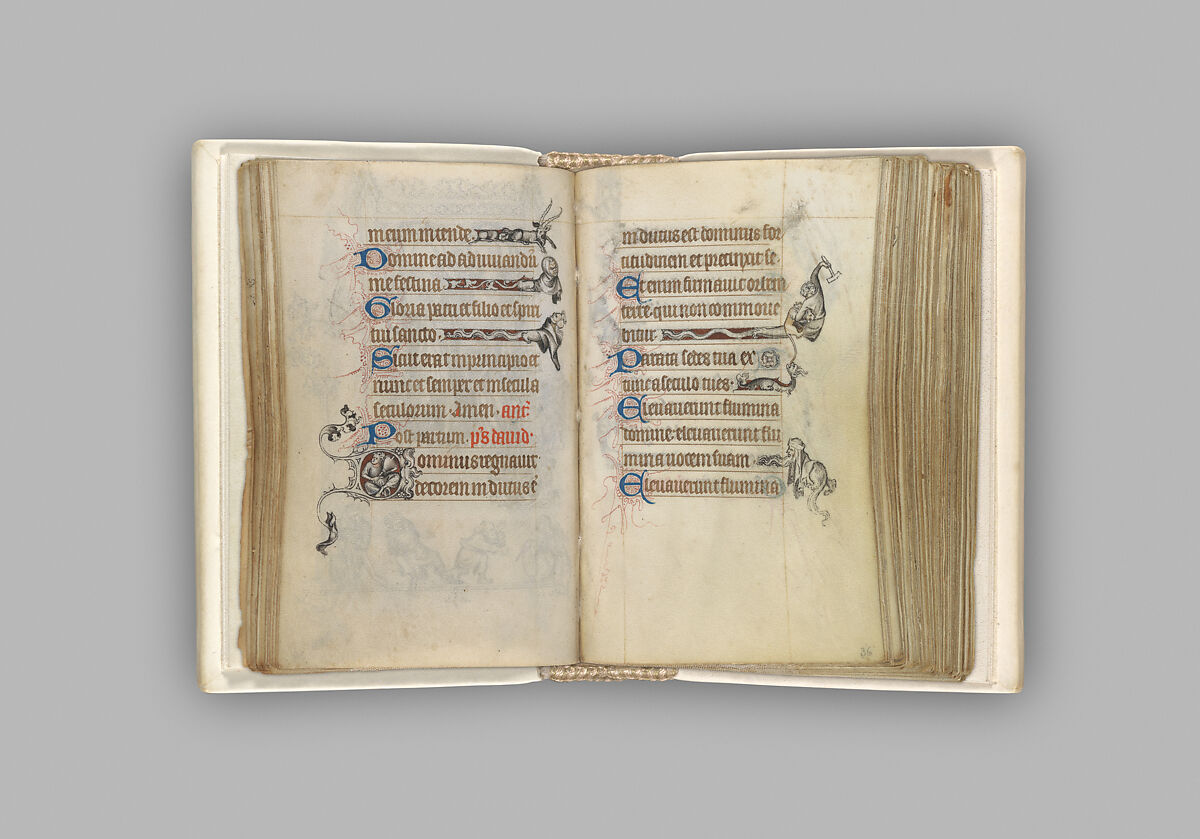 meum intende
Domine ad adiuuandū
me festina
Gloria patri et filio et spiri
tui sancto
Sicut erat in principio et
nunc et semper et in secula
seculorum · Amen · an̄t
Post partum · ps̄ dauid ·
Dominus regnauit
decorem indutus ē
indutus est dominus for
titudinem et precinxit se ·
Etenim firmauit orbem
terre · qui non commoue
bitur
Parata sedes tua ex
tunc a seculo tu es ·
Eleuauerunt flumina
domine · eleuauerunt flu
mina uocem suam
Eleuauerunt flumina
36